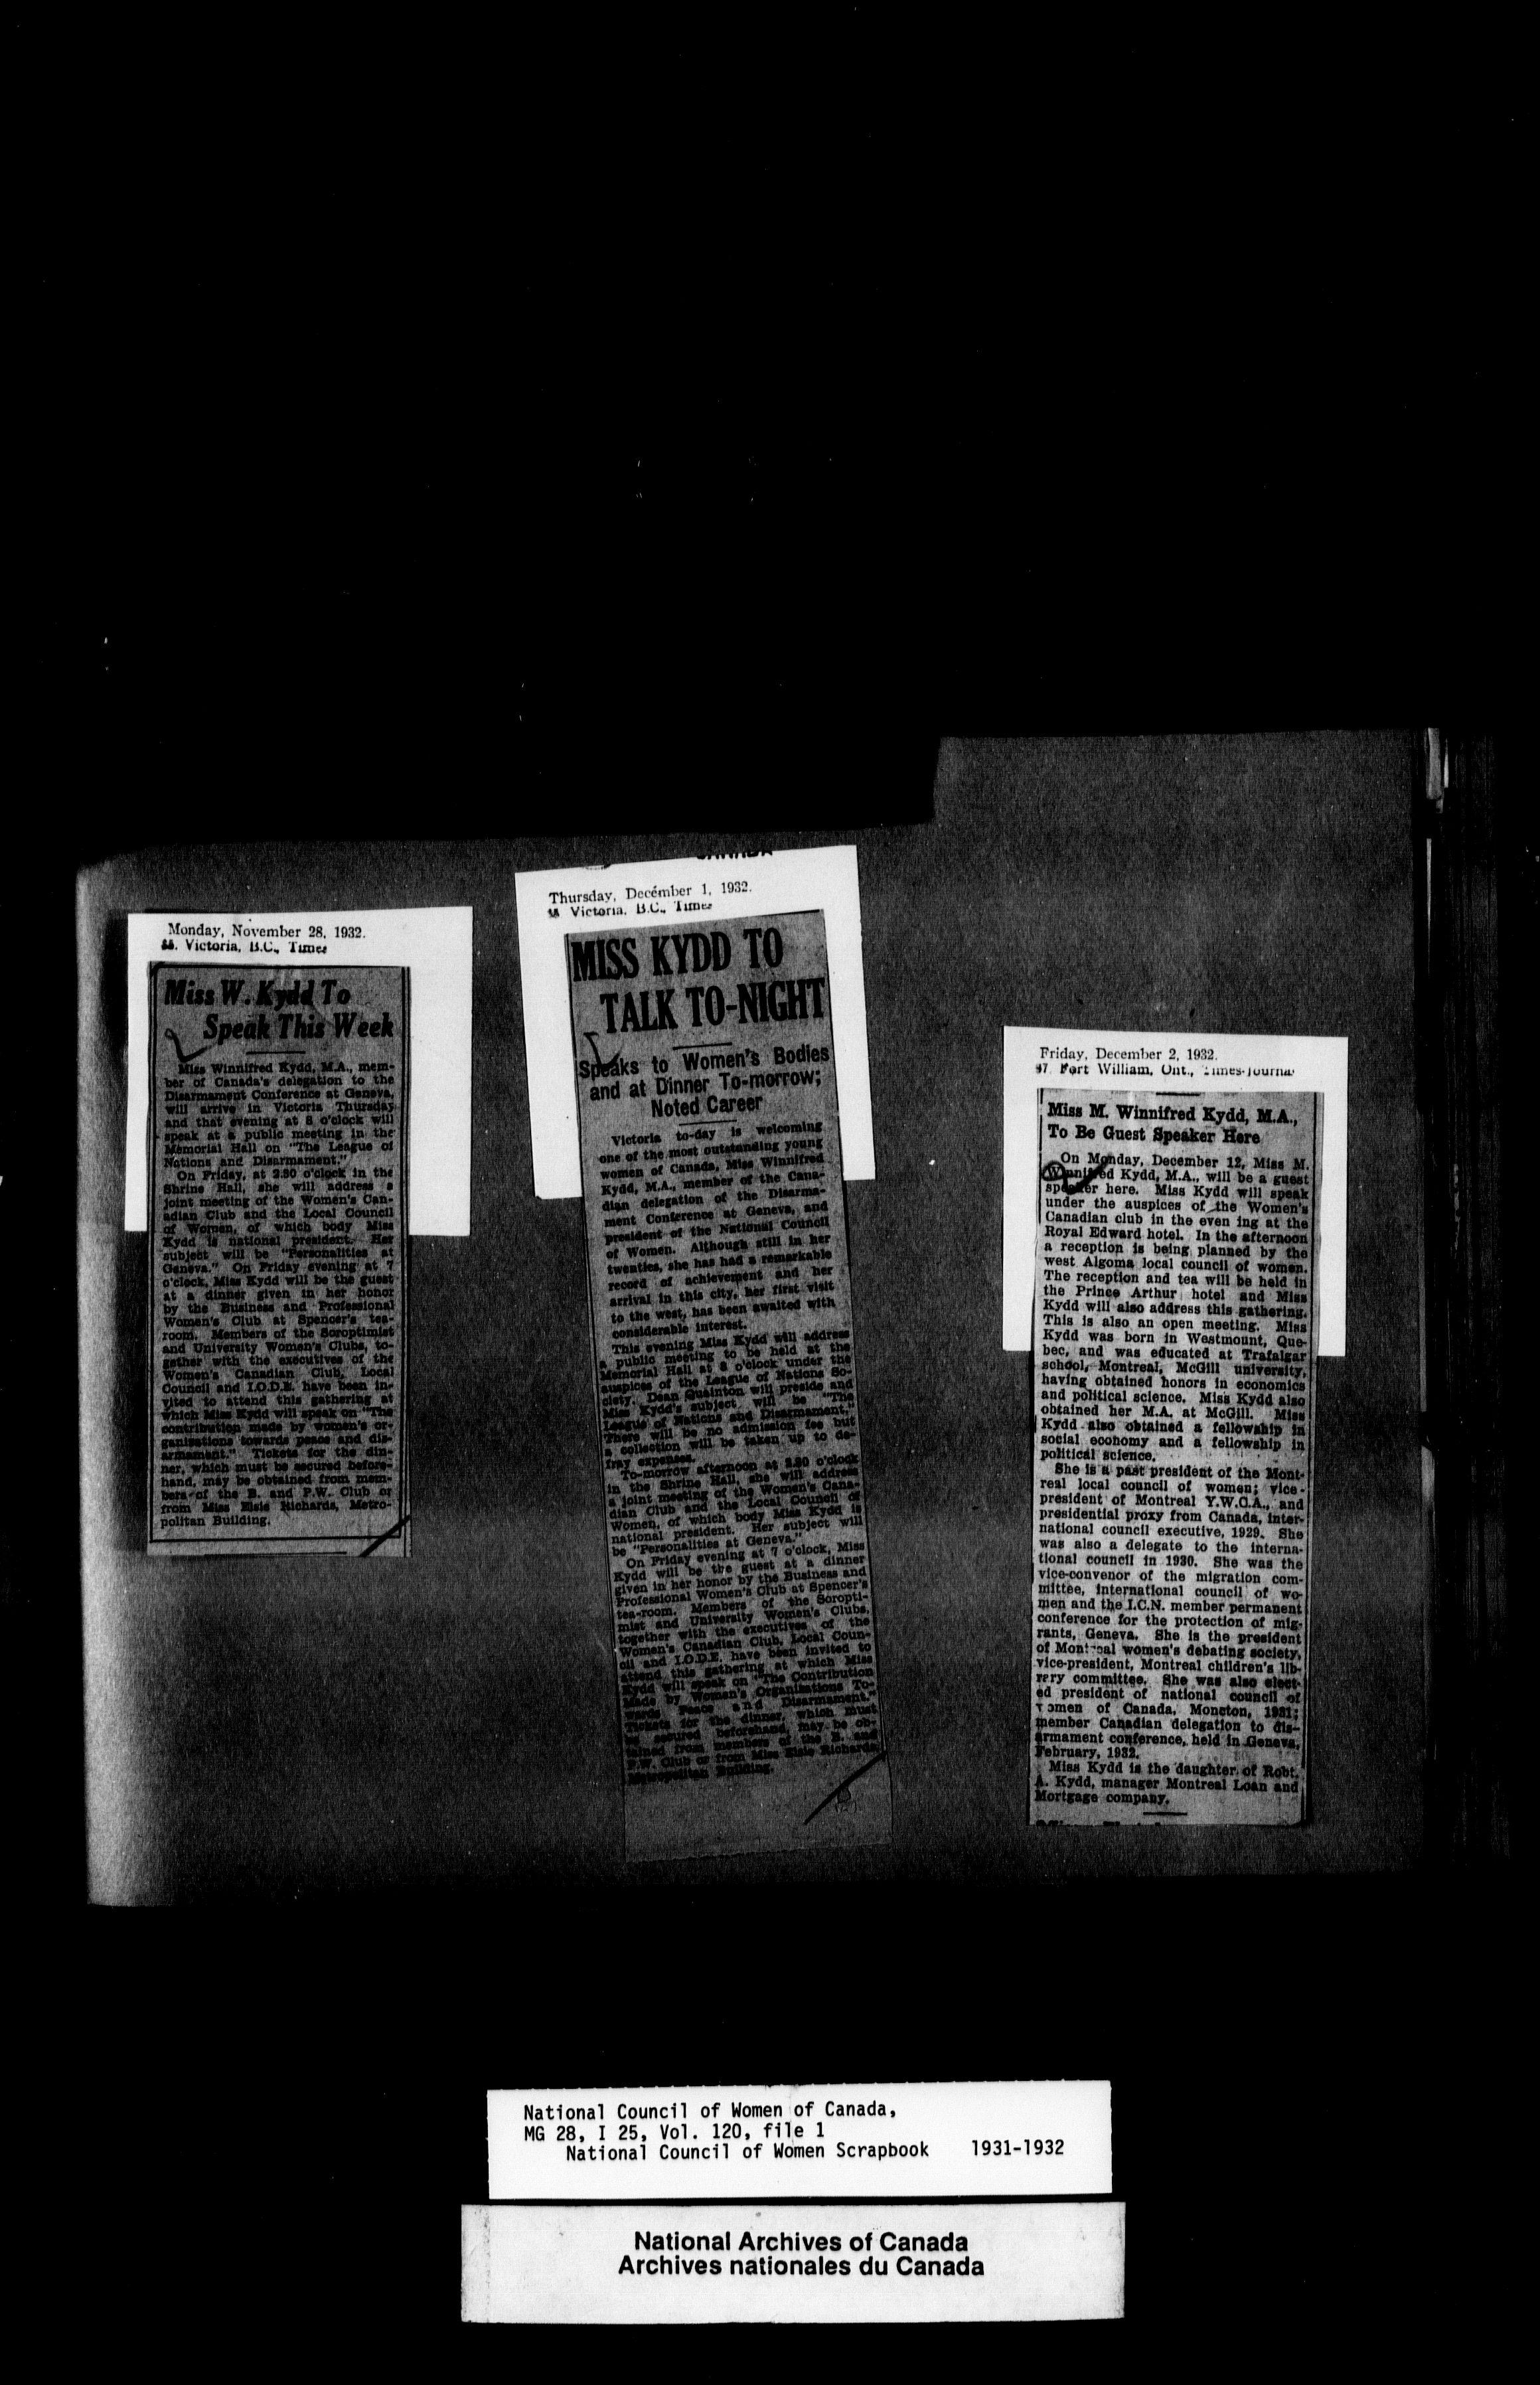 Monday, November 28, 1932.
Victoria, B.C., Times
Miss W. Kydd To
Speak This Week
Miss Winnifred Kydd, M.A., mem-
ber of Canada's delegation to the
Disarmament Conference at Geneva,
will arrive in Victoria Thursday
and that evening at 8 o'clock will
speak at a public meeting in the
Memorial Hall on "The League of
Nations and Disarmament."
On Friday, at 2.30 o'clock in the
Shrine Hall, she will address a
joint meeting of the Women's Can-
adian Club and the Local Council
of Women, of which body Miss
Kydd is national president. Her
subject will be "Personalities at
Geneva." On Friday evening at 7
o'clock, Miss Kydd will be the guest
at a dinner given in her honor
by the Business and Professional
Women's Club at Spencer's tea-
room. Members of the Soroptimist
and University Women's Clubs, to-
gether with the executives of the
Women's Canadian Club, Local
Council and I.O.D.E. have been in-
vited to attend this gathering at
which Miss Kydd will speak on "The
contribution made by women's or-
ganisations towards peace and dis-
armament." Tickets for the din-
ner, which must be secured before-
hand, may be obtained from mem-
bers of the B. and P.W. Club or
from Miss Elsie Richards, Metro-
politan Building.
CANADA
Thursday, December 1, 1932.
Victoria, B.C., Times
MISS KYDD TO
TALK TO-NIGHT
Speaks to Women's Bodies
and at Dinner To-morrow;
Noted Career
Victoria to-day is welcoming
one of the most outstanding young
women of Canada, Miss Winnifred
Kydd, M.A., member of the Cana-
dian delegation of the Disarma-
ment Conference at Geneva, and
president of the National Council
of Women. Although still in her
twenties, she has had a remarkable
record of achievement and her
arrival in this city, her first visit
to the west, has been awaited with
considerable interest.
This evening Miss Kydd will address
a public meeting to be held at the
Memorial Hall at 8 o'clock under the
auspices of the League of Nations So-
ciety. Dean Quainton will preside and
Miss Kydd's subject will be "The
League of Nations and Disarmament."
There will be no admission fee but
a collection will be taken up to de-
fray expenses.
To-morrow afternoon at 2.30 o'clock
in the Shrine Hall, she will address
a joint meeting of the Women's Cana-
dian Club and the Local Council of
Women, of which body Miss Kydd is
national president. Her subject will
be "Personalities at Geneva."
On Friday evening at 7 o'clock, Miss
Kydd will be the guest at a dinner
given in her honor by the Business and
Professional Women's Club at Spencer's
tea-room. Members of the Soropti-
mist and University Women's Clubs,
together with the executives of the
Women's Canadian Club, Local Coun-
cil and I.O.D.E. have been invited to
attend this gathering at which Miss
Kydd will speak on "The Contribution
Made by Women's Organisations To-
wards Peace and Disarmament."
Tickets for the dinner, which must
be secured beforehand, may be ob-
tained from members of the B. and
P.W. Club or from Miss Elsie Richards,
Metropolitan Building.
Friday, December 2, 1932.
Fort William, Ont., Times-Journal
Miss M. Winnifred Kydd, M.A.,
To Be Guest Speaker Here
On Monday, December 12, Miss M.
Winnifred Kydd, M.A., will be a guest
speaker here. Miss Kydd will speak
under the auspices of the Women's
Canadian club in the even ing at the
Royal Edward hotel. In the afternoon
a reception is being planned by the
west Algoma local council of women.
The reception and tea will be held in
the Prince Arthur hotel and Miss
Kydd will also address this gathering.
This is also an open meeting. Miss
Kydd was born in Westmount, Que-
bec, and was educated at Trafalgar
school, Montreal, McGill university,
having obtained honors in economics
and political science. Miss Kydd also
obtained her M.A. at McGill. Miss
Kydd also obtained a fellowship in
social economy and a fellowship in
political science.
She is a past president of the Mont-
real local council of women; vice-
president of Montreal Y.W.C.A., and
presidential proxy from Canada, inter-
national council executive, 1929. She
was also a delegate to the interna-
tional council in 1930. She was the
vice-convenor of the migration com-
mittee, international council of wo-
men and the I.C.N. member permanent
conference for the protection of mig-
rants, Geneva. She is the president
of Montreal women's debating society,
vice-president, Montreal children's lib-
rary committee. She was also elect-
ed president of national council of
women of Canada, Moncton, 1931;
member Canadian delegation to dis-
armament conference, held in Geneva,
February, 1932.
Miss Kydd is the daughter of Robt.
A. Kydd, manager Montreal Loan and
Mortgage company.
National Council of Women of Canada,
MG 28, I 25, Vol. 120, file 1
National Council of Women Scrapbook 1931-1932
National Archives of Canada
Archives nationales du Canada